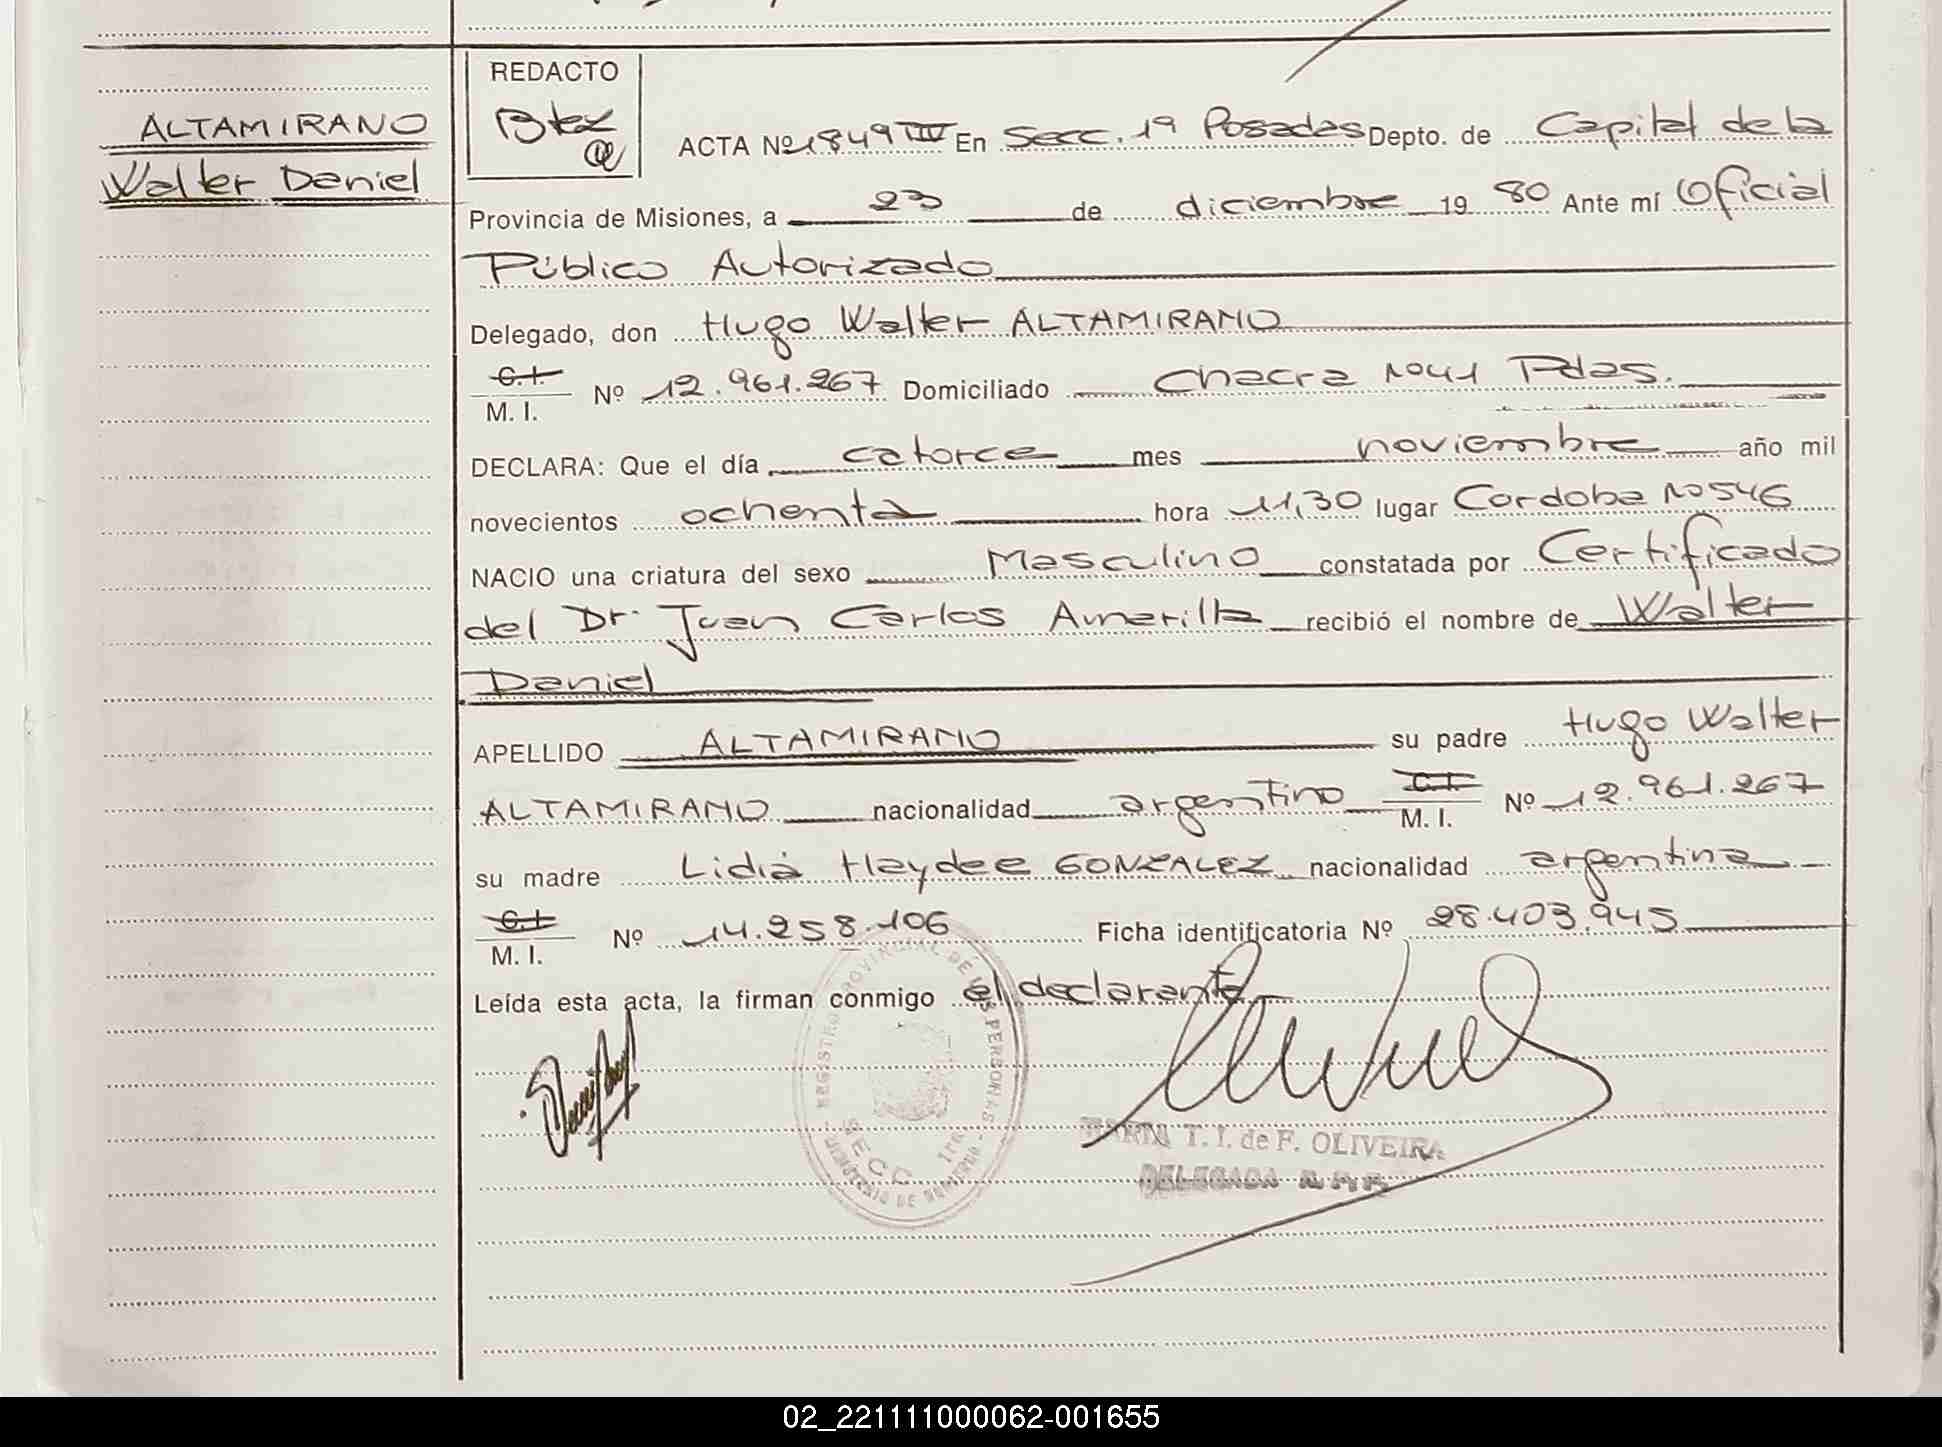 ALTAMIRANO
Walter Daniel
REDACTO
ACTA Nº 1849 TIV En Secc. 1ª Posadas Depto. de Capital de la
Provincia de Misiones, a 23 de diciembre 19 80 Ante mí Oficial
Público Autorizado
Delegado, don Hugo Walter ALTAMIRANO
C.I.
M. I. Nº 12.961.267 Domiciliado Chacra Nº41 Pdas.
DECLARA: Que el día catorce mes noviembre año mil
novecientos ochenta hora 11,30 lugar Cordoba Nº546
NACIO una criatura del sexo Masculino constatada por Certificado
del Dr. Juan Carlos Amarilla recibió el nombre de Walter
Daniel
APELLIDO ALTAMIRANO su padre Hugo Walter
ALTAMIRANO nacionalidad argentino C.I. M. I. Nº 12.961.267
su madre Lidia Haydee GONZALEZ nacionalidad argentina
C.I.
M. I. Nº 14.258.106 Ficha identificatoria Nº 28.403.945
Leída esta acta, la firman conmigo el declarante
REGISTRO PROVINCIAL DE LAS PERSONAS
SECC 1ra
MINISTERIO DE GOBIERNO
MARTA T. I. de F. OLIVEIRA
DELEGADA R. P. P.
02_221111000062-001655